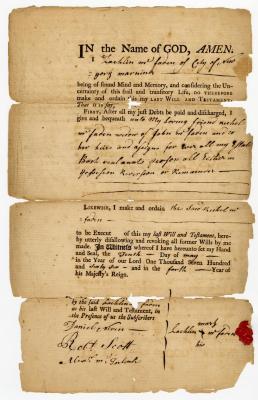 IN the Name of GOD, AMEN.
I Lachlen mc faden of City of New
york marriner
being of sound Mind and Memory, and considering the Un-
certainty of this frail and transitory Life, DO THEREFORE
make and ordain this my LAST WILL AND TESTAMENT;
That is to say,
FIRST, After all my just Debts be paid and discharged, I
give and bequeath unto My Loving friend
mc faden widow of John mc faden and to
her heirs and asigns for Ever all my Estate
Both real and person all Either in
posession Reversion or Remainder
LIKEWISE, I make and ordain the said mc
faden
to be Execut of this my last Will and Testament, here-
by utterly disallowing and revoking all former Wills by me
made. In Witness whereof I have hereunto set my Hand
and Seal, the Tenth Day of may
in the Year of our Lord One Thousand Seven Hundred
and sixty six and in the Year of
his Majesty's Reign.
by the said Lachlen mc faden
as his last Will and Testament, in
the Presence of us the Subscribers
Daniel
Robt Scott
mark
Lachlen mc faden
his